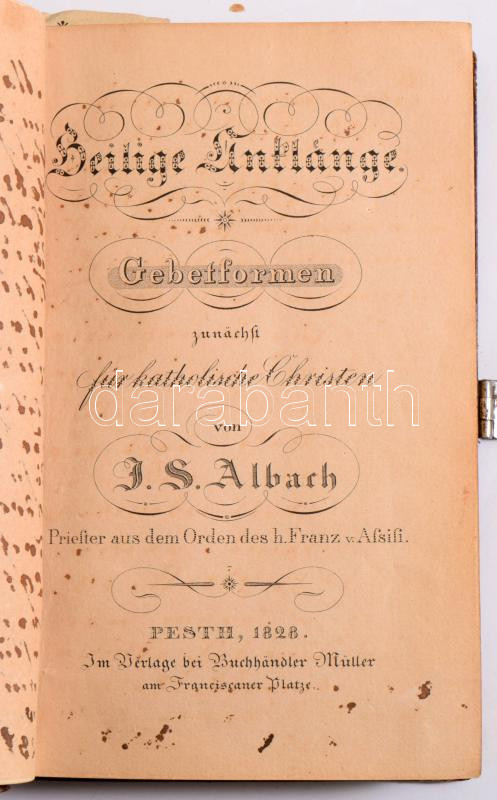 Heilige Anklänge.
Gebetformen
zunächst
für katholische Christen
darabanth
von
J. S. Albach
Priester aus dem Orden des h. Franz v. Assisi.
PESTH, 1828.
Im Verlage bei Buchhändler Müller
am Franciscaner Platze.